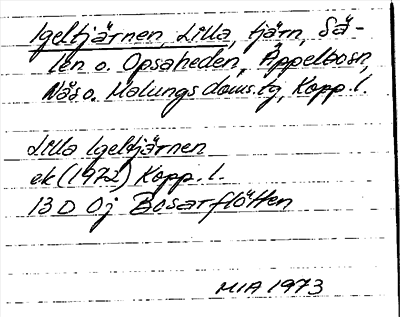 Igeltjärnen, Lilla, tjärn, Sä-
len o. Opsaheden, Äppelbosn,
Nås o. Malungs doms.tg, Kopp. l.
Lilla Igeltjärnen
ek (1972) Kopp. l.
13 D 0j Bosarflötten
MIA 1973